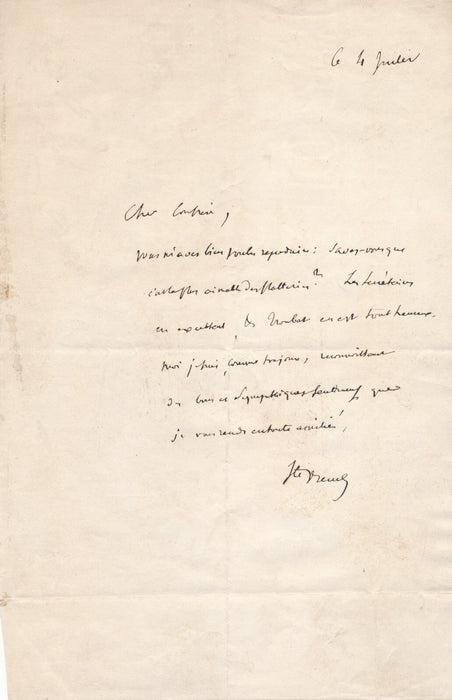 Ce 4 Juillet
Cher Confrère,
vous m'avez bien voulu reproduire : savez-vous que
c'est la plus aimable des flatteries ? Les secrétaires
en exultent, Troubat en est tout heureux.
Moi je suis, comme toujours, reconnaissant
des bons et sympathiques sentiments que
je vous rends en toute amitié,
Ste Beuve